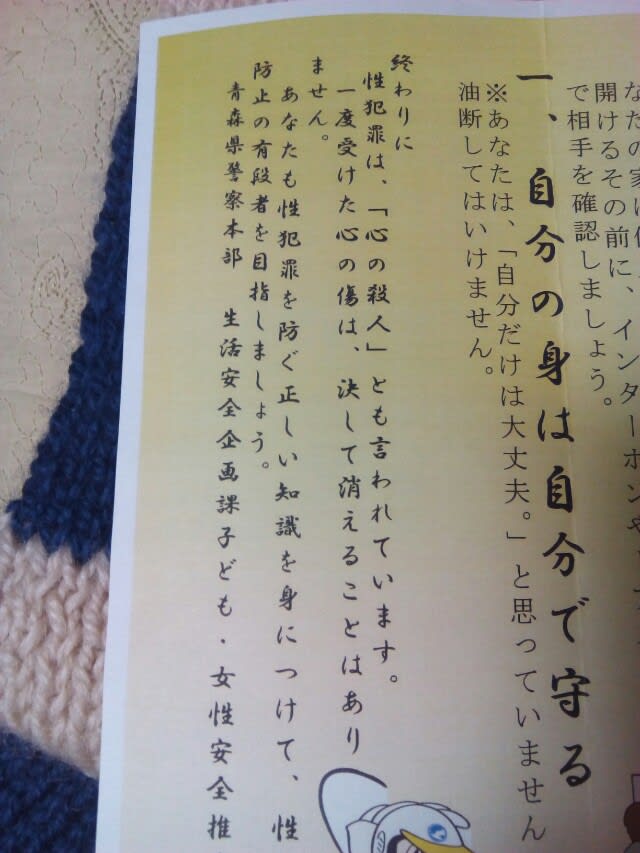 開けるその前に、インターホンや
で相手を確認しましょう。
一、自分の身は自分で守る
※あなたは、「自分だけは大丈夫。」と思っていません
油断してはいけません。
終わりに
性犯罪は、「心の殺人」とも言われています。
一度受けた心の傷は、決して消えることはあり
ません。
あなたも性犯罪を防ぐ正しい知識を身につけて、性
防止の有段者を目指しましょう。
青森県警察本部 生活安全企画課子ども・女性安全推